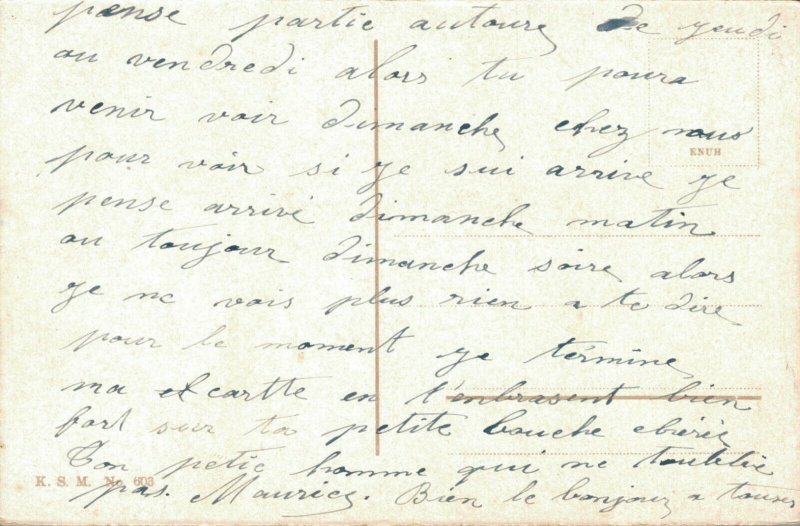 pense partie autoure de yeudi
ou vendredi alors tu poura
venir voir dimanche chez nous
KNUH
pour voir si ye sui arrive ye
pense arrivé dimanche matin
ou toujour dimanche soire alors
ye ne vois plus rien a te dire
pour le moment ye términe
ma cartte en t'enbrasent bien
fort sur ta petite bouche chérie
Ton petit homme qui ne toublie
K. S. M. No 603
pas. Maurice. Bien le bonjour a tous